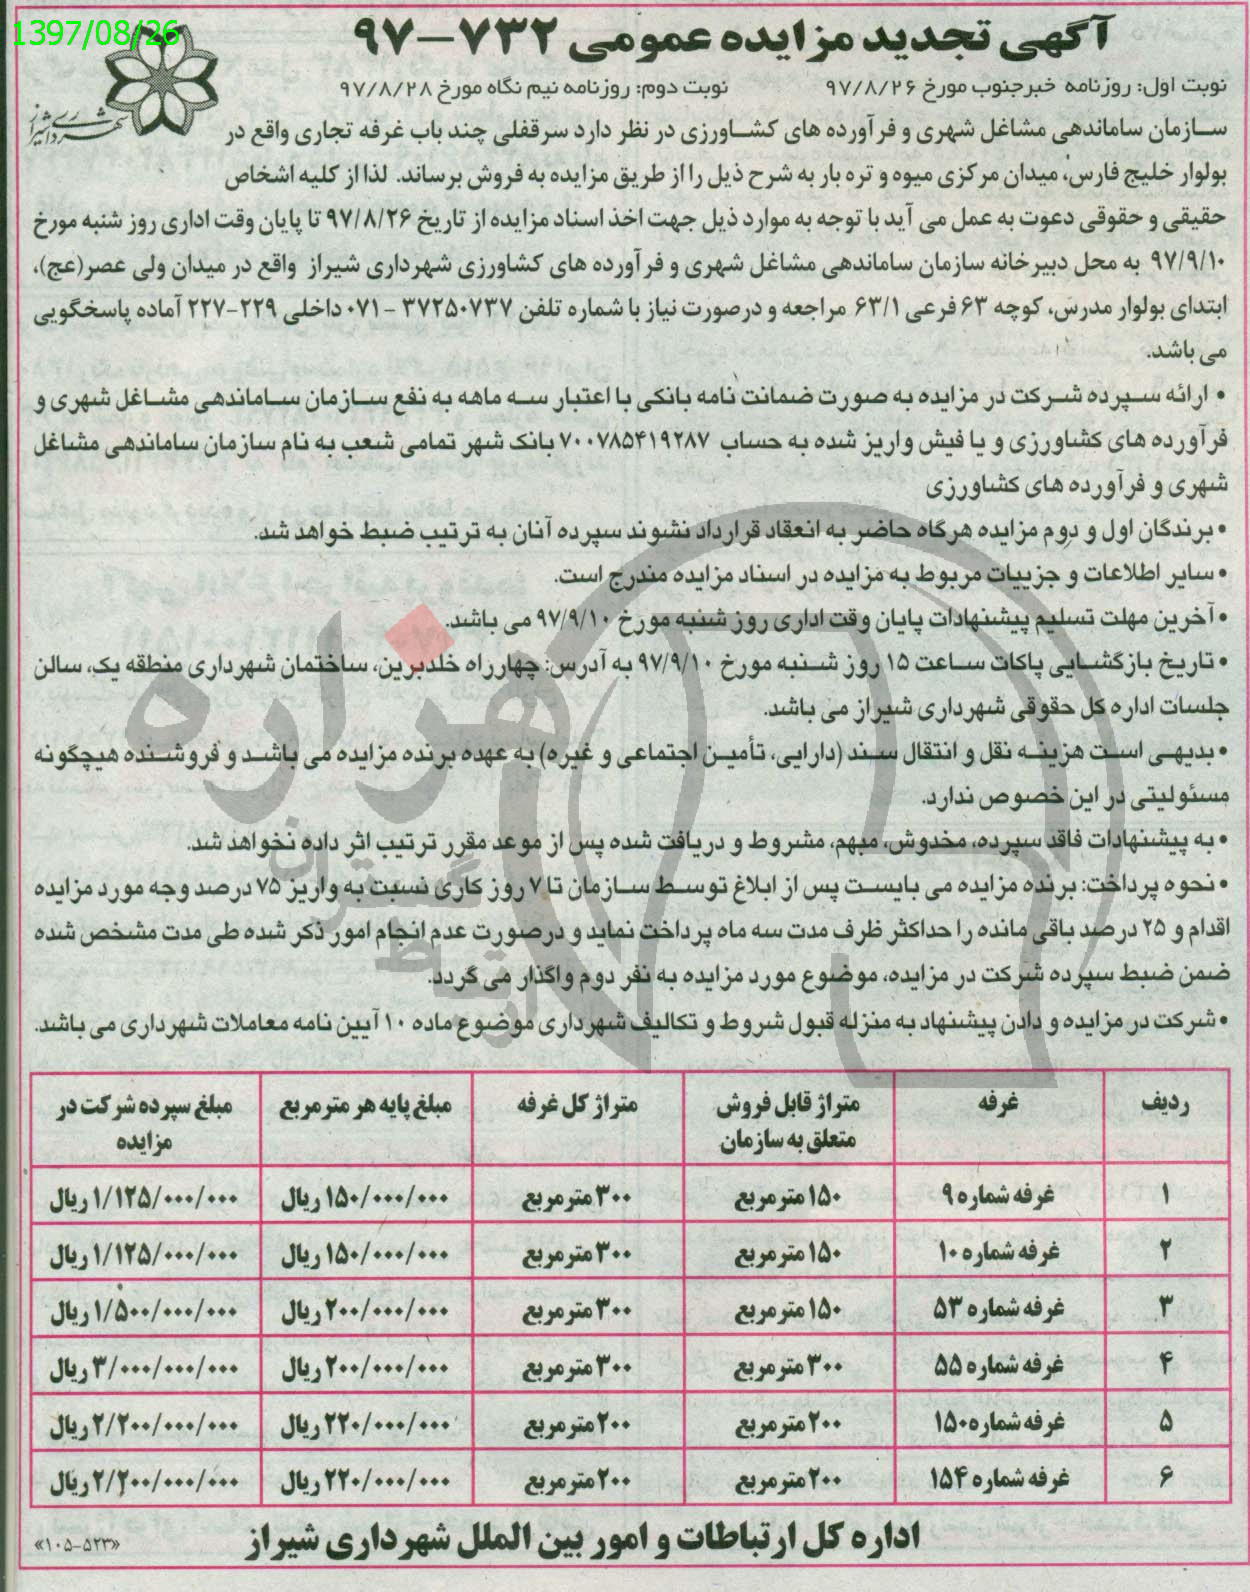 1397/08/26
آگهی تجدید مزایده عمومی ۷۳۲-۹۷
نوبت اول: روزنامه خبرجنوب مورخ ۹۷/۸/۲۶ نوبت دوم: روزنامه نیم نگاه مورخ ۹۷/۸/۲۸
شهرداری شیراز
سازمان ساماندهی مشاغل شهری و فرآورده های کشاورزی در نظر دارد سرقفلی چند باب غرفه تجاری واقع در
بولوار خلیج فارس، میدان مرکزی میوه و تره بار به شرح ذیل را از طریق مزایده به فروش برساند. لذا از کلیه اشخاص
حقیقی و حقوقی دعوت به عمل می آید با توجه به موارد ذیل جهت اخذ اسناد مزایده از تاریخ ۹۷/۸/۲۶ تا پایان وقت اداری روز شنبه مورخ
۹۷/۹/۱۰ به محل دبیرخانه سازمان ساماندهی مشاغل شهری و فرآورده های کشاورزی شهرداری شیراز واقع در میدان ولی عصر(عج)،
ابتدای بولوار مدرس، کوچه ۶۳ فرعی ۶۳/۱ مراجعه و درصورت نیاز با شماره تلفن ۳۷۲۵۰۷۳۷ - ۰۷۱ داخلی ۲۲۹-۲۲۷ آماده پاسخگویی
می باشد.
• ارائه سپرده شرکت در مزایده به صورت ضمانت نامه بانکی با اعتبار سه ماهه به نفع سازمان ساماندهی مشاغل شهری و
فرآورده های کشاورزی و یا فیش واریز شده به حساب ۷۰۰۷۸۵۴۱۹۲۸۷ بانک شهر تمامی شعب به نام سازمان ساماندهی مشاغل
شهری و فرآورده های کشاورزی
• برندگان اول و دوم مزایده هرگاه حاضر به انعقاد قرارداد نشوند سپرده آنان به ترتیب ضبط خواهد شد.
• سایر اطلاعات و جزییات مربوط به مزایده در اسناد مزایده مندرج است.
• آخرین مهلت تسلیم پیشنهادات پایان وقت اداری روز شنبه مورخ ۹۷/۹/۱۰ می باشد.
• تاریخ بازگشایی پاکات ساعت ۱۵ روز شنبه مورخ ۹۷/۹/۱۰ به آدرس: چهارراه خلدبرین، ساختمان شهرداری منطقه یک، سالن
جلسات اداره کل حقوقی شهرداری شیراز می باشد.
• بدیهی است هزینه نقل و انتقال سند (دارایی، تأمین اجتماعی و غیره) به عهده برنده مزایده می باشد و فروشنده هیچگونه
مسئولیتی در این خصوص ندارد.
• به پیشنهادات فاقد سپرده، مخدوش، مبهم، مشروط و دریافت شده پس از موعد مقرر ترتیب اثر داده نخواهد شد.
• نحوه پرداخت: برنده مزایده می بایست پس از ابلاغ توسط سازمان تا ۷ روز کاری نسبت به واریز ۷۵ درصد وجه مورد مزایده
اقدام و ۲۵ درصد باقی مانده را حداکثر ظرف مدت سه ماه پرداخت نماید و درصورت عدم انجام امور ذکر شده طی مدت مشخص شده
ضمن ضبط سپرده شرکت در مزایده، موضوع مورد مزایده به نفر دوم واگذار می گردد.
• شرکت در مزایده و دادن پیشنهاد به منزله قبول شروط و تکالیف شهرداری موضوع ماده ۱۰ آیین نامه معاملات شهرداری می باشد.
هزاره
ردیف غرفه متراژ قابل فروش متعلق به سازمان متراژ کل غرفه مبلغ پایه هر مترمربع مبلغ سپرده شرکت در مزایده
۱ غرفه شماره ۹ ۱۵۰ مترمربع ۳۰۰ مترمربع ۱۵۰/۰۰۰/۰۰۰ ریال ۱/۱۲۵/۰۰۰/۰۰۰ ریال
۲ غرفه شماره ۱۰ ۱۵۰ مترمربع ۳۰۰ مترمربع ۱۵۰/۰۰۰/۰۰۰ ریال ۱/۱۲۵/۰۰۰/۰۰۰ ریال
۳ غرفه شماره ۵۳ ۱۵۰ مترمربع ۳۰۰ مترمربع ۲۰۰/۰۰۰/۰۰۰ ریال ۱/۵۰۰/۰۰۰/۰۰۰ ریال
۴ غرفه شماره ۵۵ ۳۰۰ مترمربع ۳۰۰ مترمربع ۲۰۰/۰۰۰/۰۰۰ ریال ۳/۰۰۰/۰۰۰/۰۰۰ ریال
۵ غرفه شماره ۱۵۰ ۲۰۰ مترمربع ۲۰۰ مترمربع ۲۲۰/۰۰۰/۰۰۰ ریال ۲/۲۰۰/۰۰۰/۰۰۰ ریال
۶ غرفه شماره ۱۵۴ ۲۰۰ مترمربع ۲۰۰ مترمربع ۲۲۰/۰۰۰/۰۰۰ ریال ۲/۲۰۰/۰۰۰/۰۰۰ ریال
اداره کل ارتباطات و امور بین الملل شهرداری شیراز
«۱۰۵-۵۲۳»